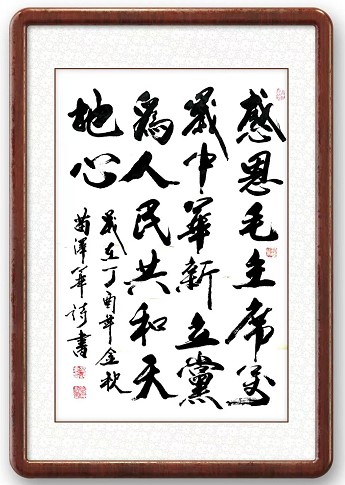 感恩毛主席萬
歲中華新立黨
爲人民共和天
地心
歲在丁酉年金秋
苗澤華詩書